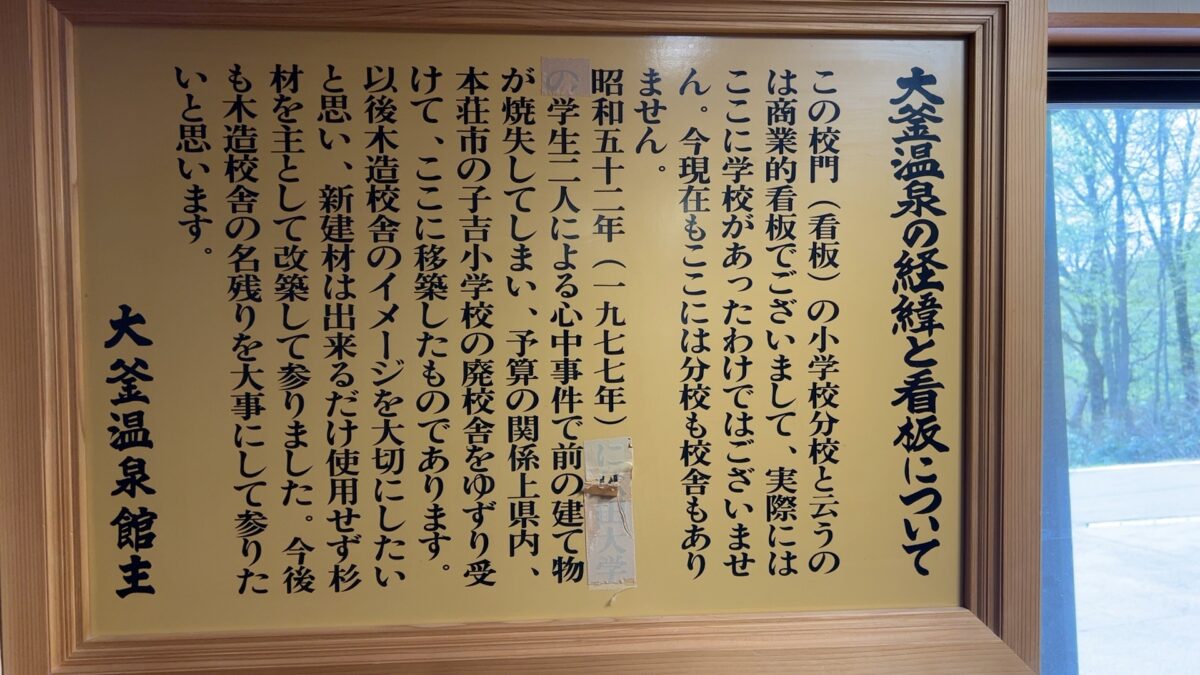 大釜温泉の経緯と看板について
この校門（看板）の小学校分校と云うの
は商業的看板でございまして、実際には
ここに学校があったわけではございませ
ん。今現在もここには分校も校舎もあり
ません。
昭和五十二年（一九七七年）に 大学
の学生二人による心中事件で前の建て物
が焼失してしまい、予算の関係上県内、
本荘市の子吉小学校の廃校舎をゆずり受
けて、ここに移築したものであります。
以後木造校舎のイメージを大切にしたい
と思い、新建材は出来るだけ使用せず杉
材を主として改築して参りました。今後
も木造校舎の名残りを大事にして参りた
いと思います。
大釜温泉館主